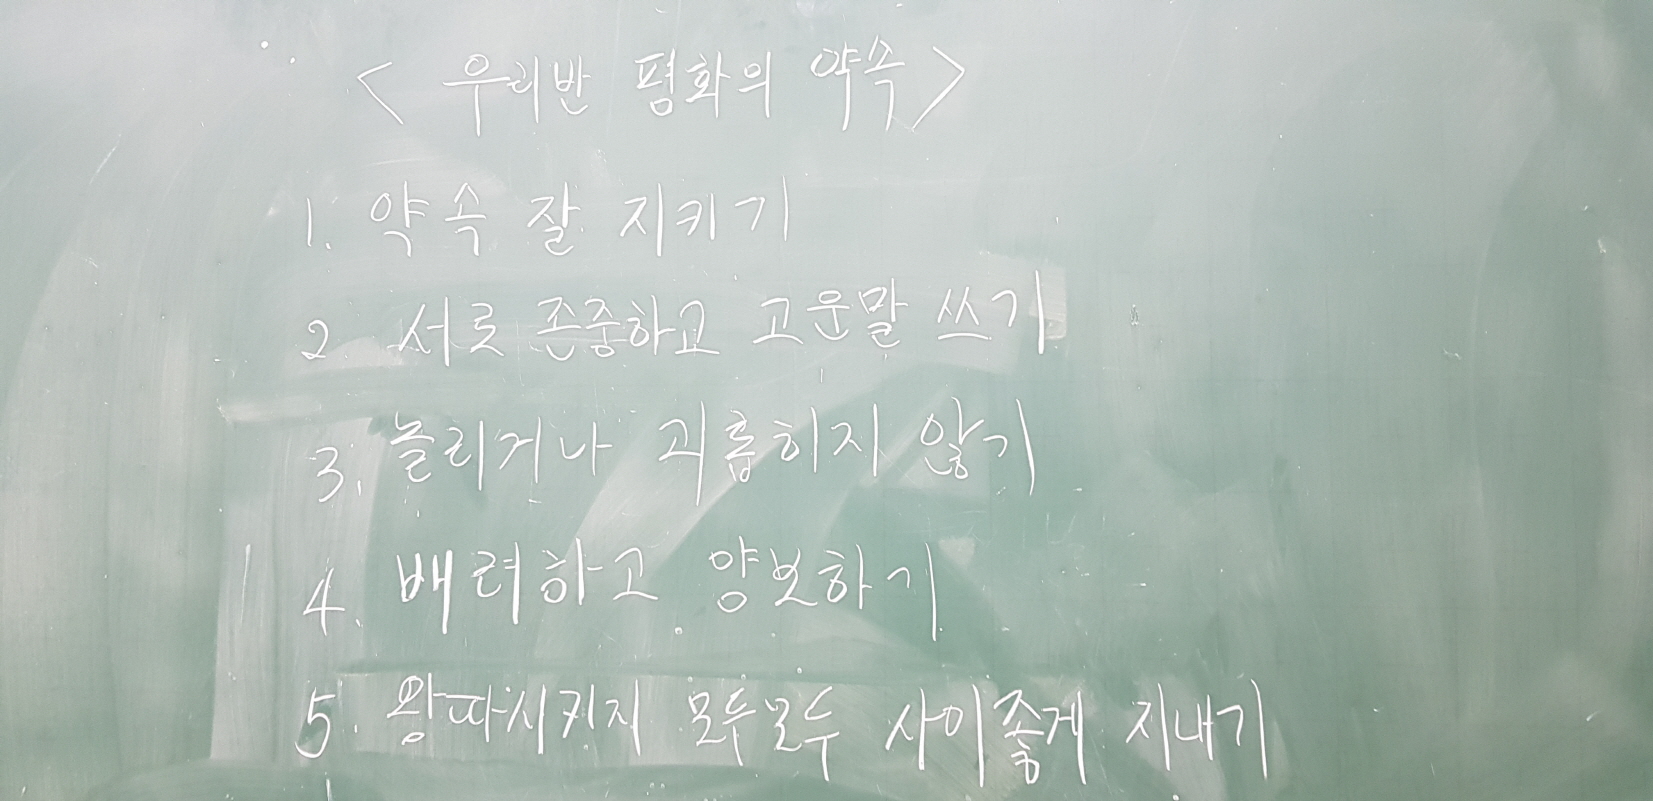 < 우리반 평화의 약속 >
1. 약속 잘 지키기
2. 서로 존중하고 고운말 쓰기
3. 놀리거나 괴롭히지 않기
4. 배려하고 양보하기
5. 왕따시키지 모두모두 사이좋게 지내기